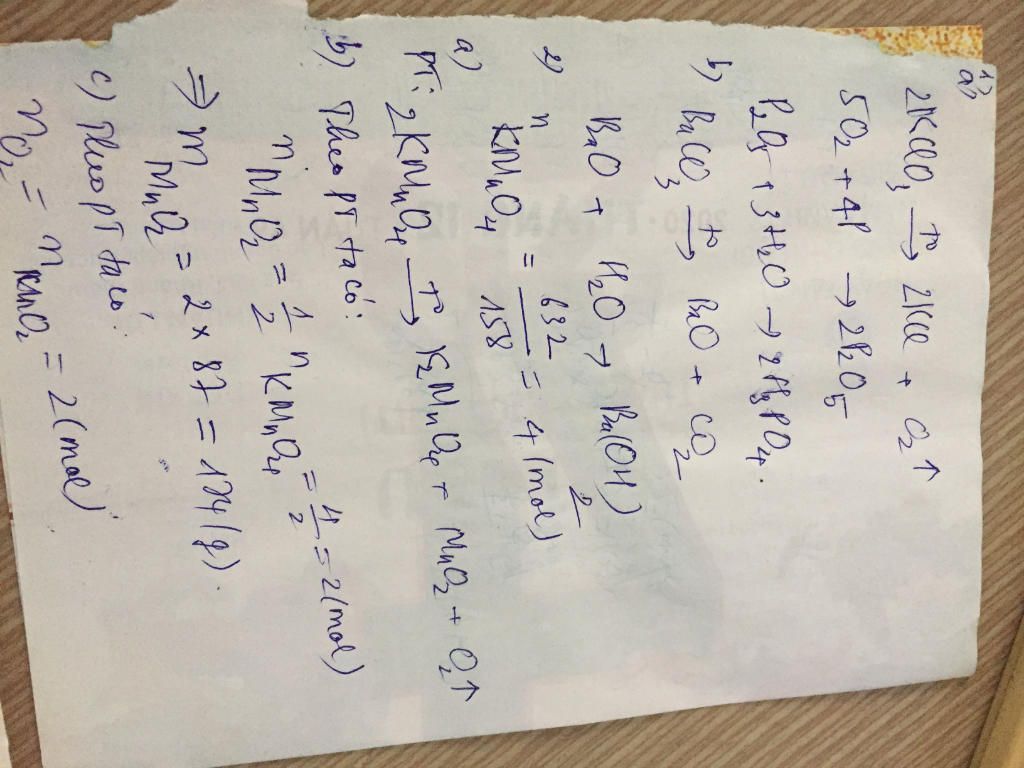 1)
a) 2KClO3 t° → 2KCl + O2 ↑
5O2 + 4P → 2P2O5
P2O5 + 3H2O → 2H3PO4.
b) BaCO3 t° → BaO + CO2
BaO + H2O → Ba(OH)2
2) n KMnO4 = 632/158 = 4 (mol)
a) PT: 2KMnO4 t° → K2MnO4 + MnO2 + O2 ↑
b) Theo PT ta có:
nMnO2 = 1/2 nKMnO4 = 4/2 = 2 (mol)
⇒ mMnO2 = 2 x 87 = 174 (g).
c) Theo PT ta có:
nO2 = nMnO2 = 2 (mol)